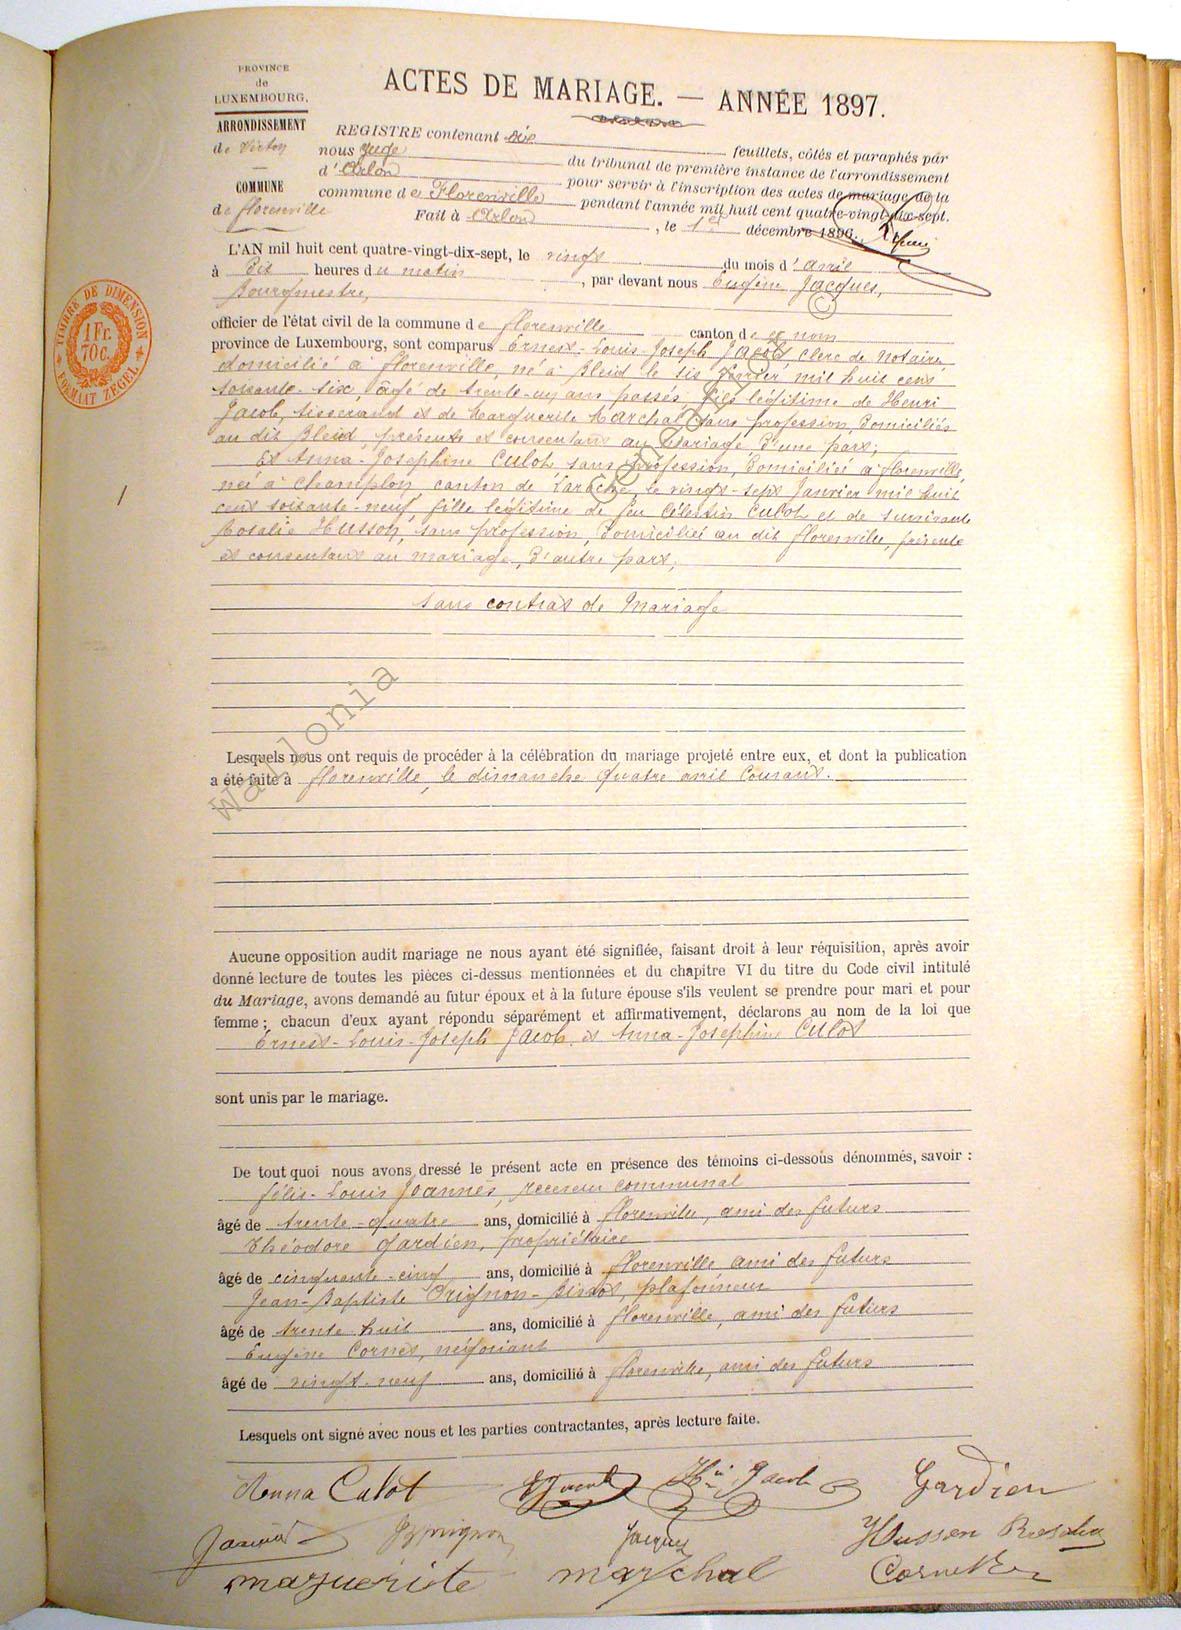 PROVINCE
de
LUXEMBOURG.
ARRONDISSEMENT
de Virton
COMMUNE
de florenville
ACTES DE MARIAGE. — ANNÉE 1897.
REGISTRE contenant dix feuillets, côtés et paraphés par
nous juge du tribunal de première instance de l'arrondissement
d'Arlon pour servir à l'inscription des actes de mariage de la
commune de Florenville pendant l'année mil huit cent quatre-vingt-dix-sept.
Fait à Arlon, le 1er décembre 1896.
TIMBRE DE DIMENSION
1 Fr.
70 c.
FORMAAT ZEGEL
L'AN mil huit cent quatre-vingt-dix-sept, le vingt du mois d'avril
à dix heures du matin, par devant nous Eugène Jacques,
Bourgmestre,
officier de l'état civil de la commune de florenville canton de ce nom
province de Luxembourg, sont comparus Ernest-Louis-Joseph Jacob, clerc de Notaire,
domicilié à florenville, né à Bleid le six Janvier mil huit cent
soixante-six, âgé de trente-un ans passés, fils légitime de Henri
Jacob, tisserand et de Marguerite Marchal, sans profession, domiciliés
au dit Bleid, présents et consentans au mariage, d'une part;
Et Anna-Josephine Culot, sans profession, domiciliée à florenville,
née à Champlon, canton de Laroche, le vingt-sept Janvier mil huit
cent soixante-neuf, fille légitime de feu Célestin Culot et de survivante
Rosalie Husson, sans profession, domiciliée au dit florenville, présente
et consentant au mariage, d'autre part;
sans contrat de Mariage
Lesquels nous ont requis de procéder à la célébration du mariage projeté entre eux, et dont la publication
a été faite à florenville, le dimanche quatre avril Courant.
Aucune opposition audit mariage ne nous ayant été signifiée, faisant droit à leur réquisition, après avoir
donné lecture de toutes les pièces ci-dessus mentionnées et du chapitre VI du titre du Code civil intitulé
du Mariage, avons demandé au futur époux et à la future épouse s'ils veulent se prendre pour mari et pour
femme ; chacun d'eux ayant répondu séparément et affirmativement, déclarons au nom de la loi que
Ernest-Louis-Joseph Jacob et Anna-Josephine Culot
sont unis par le mariage.
De tout quoi nous avons dressé le présent acte en présence des témoins ci-dessous dénommés, savoir :
félix-Louis Joannes, receveur communal
âgé de trente-quatre ans, domicilié à florenville, ami des futurs
Théodore Gardien, propriétaire
âgé de cinquante-cinq ans, domicilié à florenville ami des futurs
Jean-Baptiste Orignon-Bissot, plafonneur
âgé de trente-huit ans, domicilié à florenville, ami des futurs
Eugène Cornet, négociant
âgé de vingt-neuf ans, domicilié à florenville, ami des futurs
Lesquels ont signé avec nous et les parties contractantes, après lecture faite.
Anna Culot EJacob Hri Jacob Gardien
Joannes Jacques Husson Rosalie
marguerite marchal Cornet